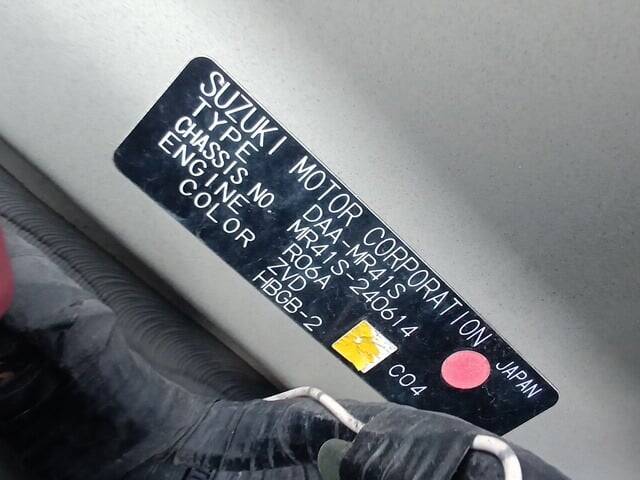 SUZUKI MOTOR CORPORATION JAPAN
TYPE DAA-MR41S
CHASSIS NO. MR41S-240614
ENGINE R06A
COLOR ZVD
HBGB-2 C04